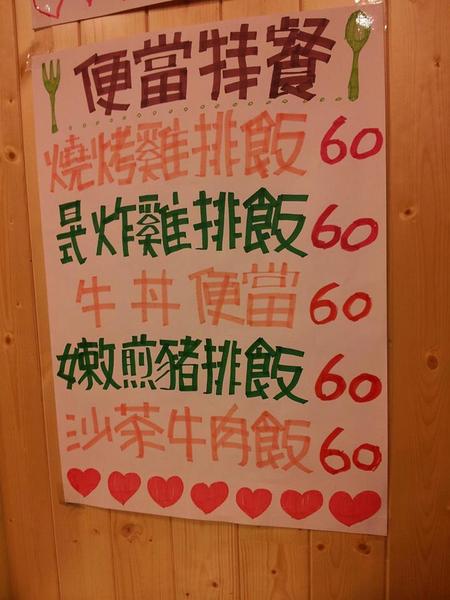 便當特餐
燒烤雞排飯 60
日式炸雞排飯 60
牛丼便當 60
嫩煎豬排飯 60
沙茶牛肉飯 60